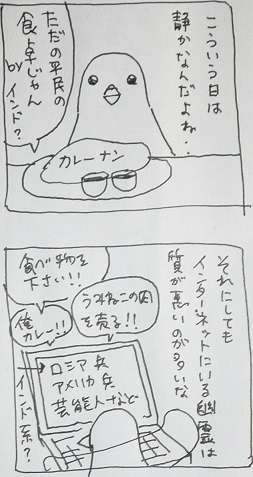 こういう日は
静かなんだよね・・
ただの平民の
食卓じゃん
by インド?
カレーナン
それにしても
インターネットにいる幽霊は
質が悪いのが多いな
食べ物を
下さい!!
俺
カレー!!
うみねこの肉
を売る!!
ロシア兵
アメリカ兵
芸能人など
インド系?